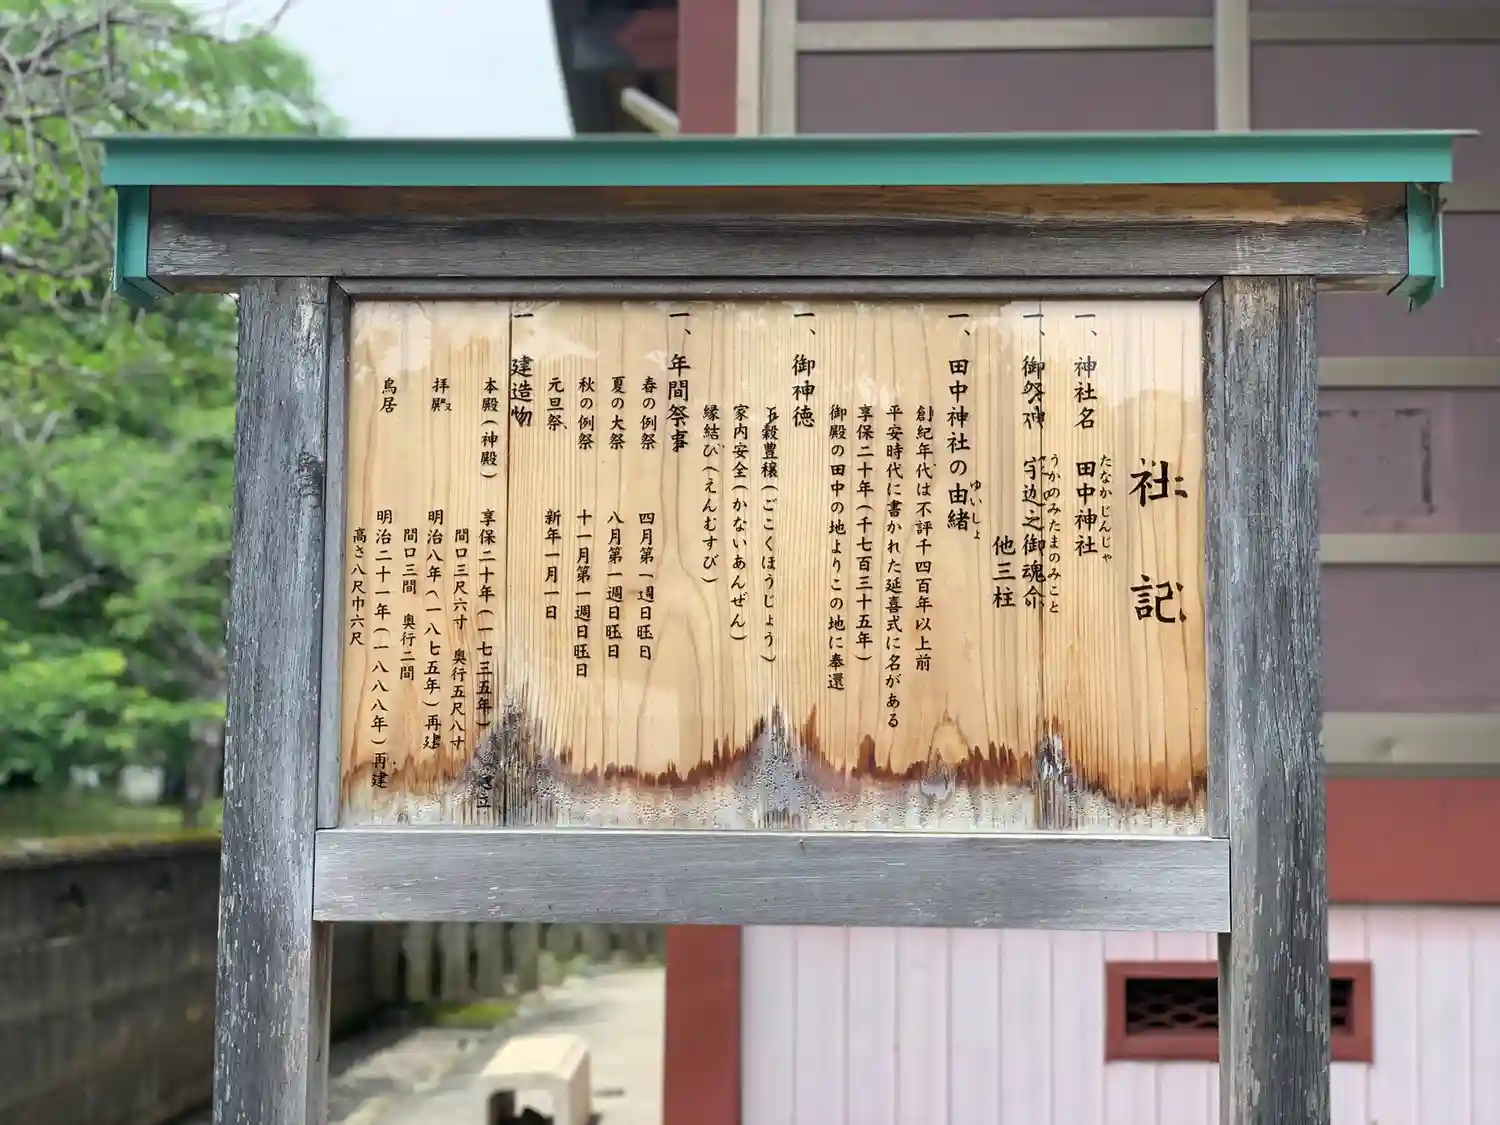 社記
一、神社名 田中神社
たなかじんじゃ
一、御祭神 宇迦之御魂命
うかのみたまのみこと
他三柱
一、田中神社の由緒
ゆいしょ
創紀年代は不評千四百年以上前
平安時代に書かれた延喜式に名がある
享保二十年(千七百三十五年)
御殿の田中の地よりこの地に奉還
一、御神徳
五穀豊穣(ごこくほうじょう)
家内安全(かないあんぜん)
縁結び(えんむすび)
一、年間祭事
春の例祭 四月第一週日旺日
夏の大祭 八月第一週日旺日
秋の例祭 十一月第一週日旺日
元旦祭 新年一月一日
一 建造物
本殿(神殿) 享保二十年(一七三五年)立
間口三尺六寸 奥行五尺八寸
拝殿 明治八年(一八七五年)再建
間口三間 奥行二間
鳥居 明治二十一年(一八八八年)再建
高さ八尺巾六尺